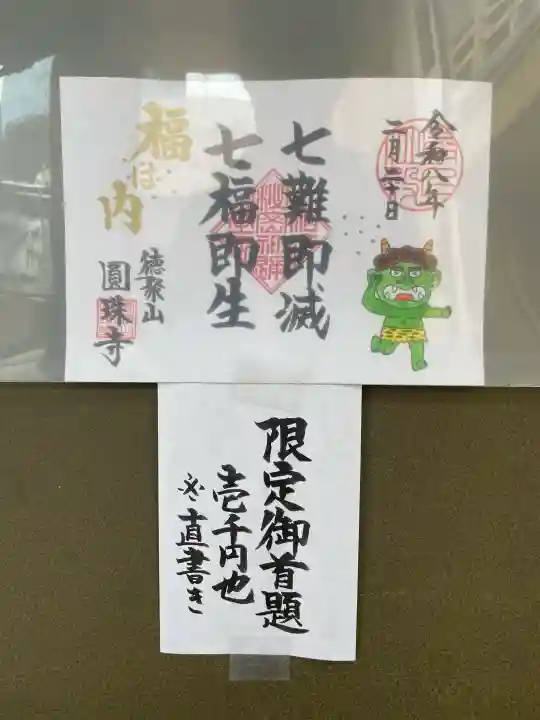 令和八年
二月二十日
七難即滅
七福即生
福は内
徳聚山
圓珠寺
限定御首題
壱千円也
直書き